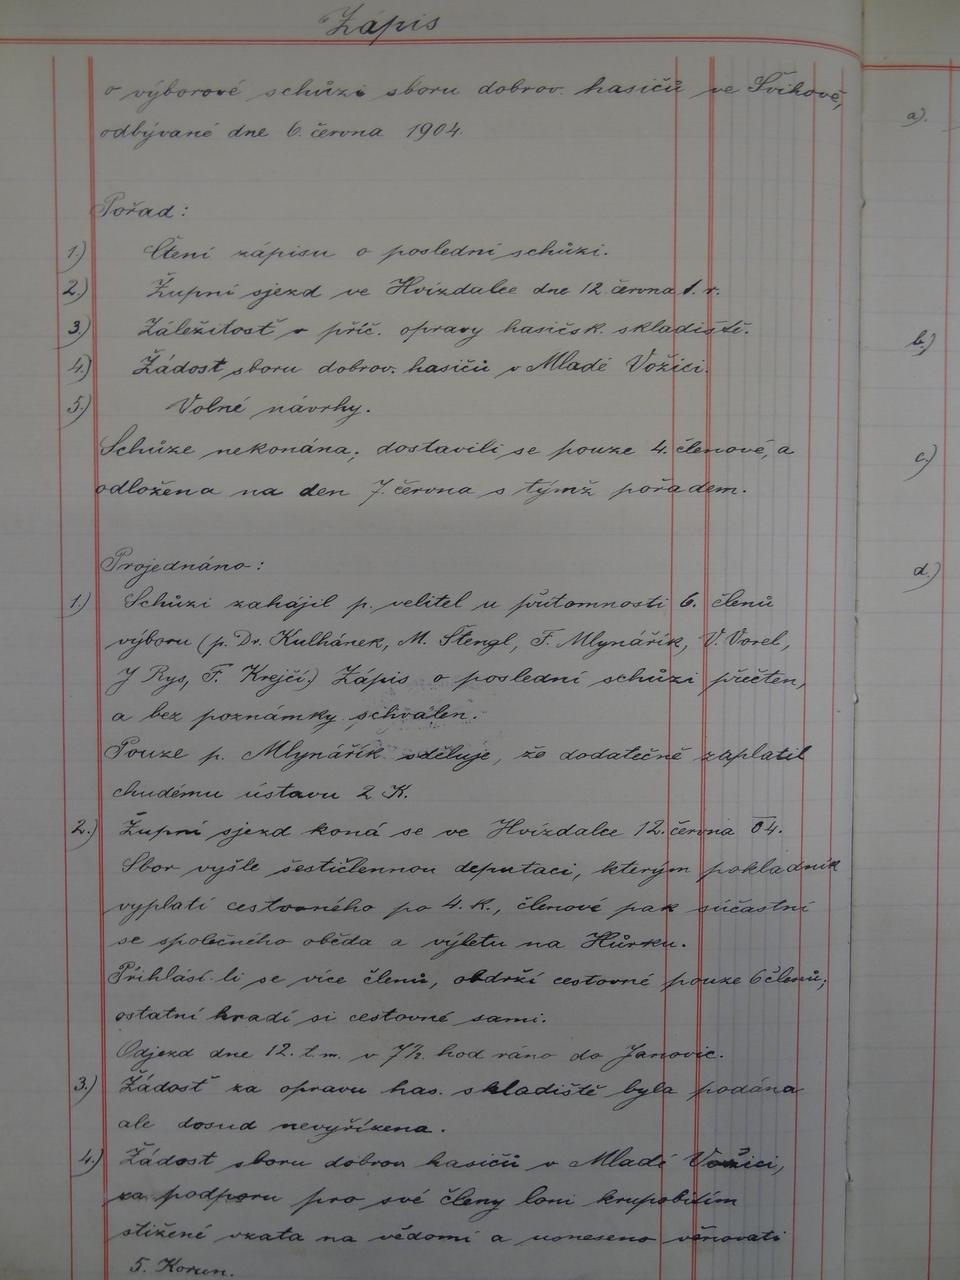 Zápis
o výborové schůzi sboru dobrov. hasičů ve Švihově,
odbývané dne 6. června 1904.
Pořad:
1.) Čtení zápisu o poslední schůzi.
2.) Župní sjezd ve Hvízdalce dne 12. června t. r.
3.) Záležitosť v příč. opravy hasičsk. skladiště.
4.) Žádost sboru dobrov. hasičů v Mladé Vožici.
5.) Volné návrhy.
Schůze nekonána; dostavili se pouze 4. členové, a
odložena na den 7. června s týmž pořadem.
Projednáno:
1.) Schůzi zahájil p. velitel u přítomnosti 6. členů
výboru (p. Dr. Kulhánek, M. Štengl, F. Mlynářík, V. Vorel,
J Rys, F. Krejčí.) Zápis o poslední schůzi přečten,
a bez poznámky schválen.
Pouze p. Mlynářík sděluje, že dodatečně zaplatil
chudému ústavu 2 K.
2.) Župní sjezd koná se ve Hvízdalce 12. června 04.
Sbor vyšle šestičlennou deputaci, kterým pokladník
vyplatí cestovného po 4. K., členové pak súčastní
se společného oběda a výletu na Hůrku.
Přihlásí-li se více členů, obdrží cestovné pouze 6 členů;
ostatní hradí si cestovné sami.
Odjezd dne 12. t. m. v 7½ hod ráno do Janovic.
3.) Žádosť za opravu has. skladiště byla podána
ale dosud nevyřízena.
4.) Žádost sboru dobrov hasičů v Mladé Vožici,
za podporu pro své členy loni krupobitím
stižené vzata na vědomí a usneseno věnovati
5. Korun.
a).
b.)
c.)
d.)